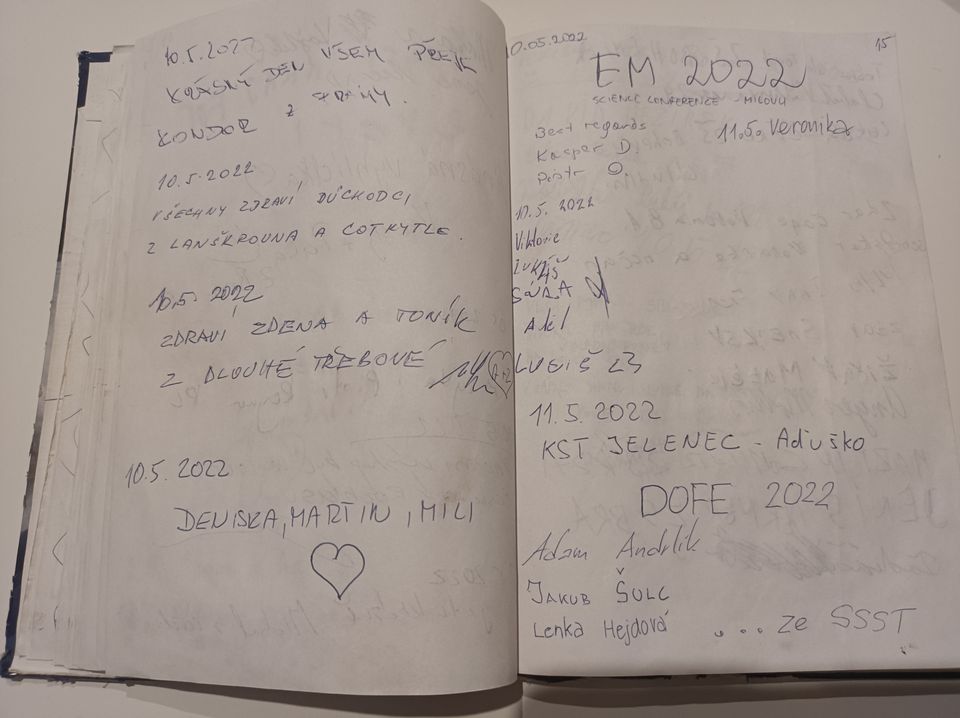 10.5.2022
KRÁSNÝ DEN VŠEM PŘEJE
KONDOR z PRAHY.
10.5.2022
VŠECHNY ZDRAVÍ DŮCHODCI
Z LANŠKROUNA A COTKYTLE.
10.5. 2022
ZDRAVÍ ZDENA A TONÍK
Z DLOUHÉ TŘEBOVÉ
10.5.2022
DENISKA, MARTIN, MILI
10.05.2022
15
EM 2022
SCIENCE CONFERENCE - MILOVY
Best regards
11.5. Veronika
Kasper D.
Piotr
10.5. 2022
Viktorie
LUKÁŠ
SÁRA
11.5.2022
KST JELENEC - Aďuško
DOFE 2022
Adam Andrlík
JAKUB ŠULC
Lenka Hejdová ... ze SSST